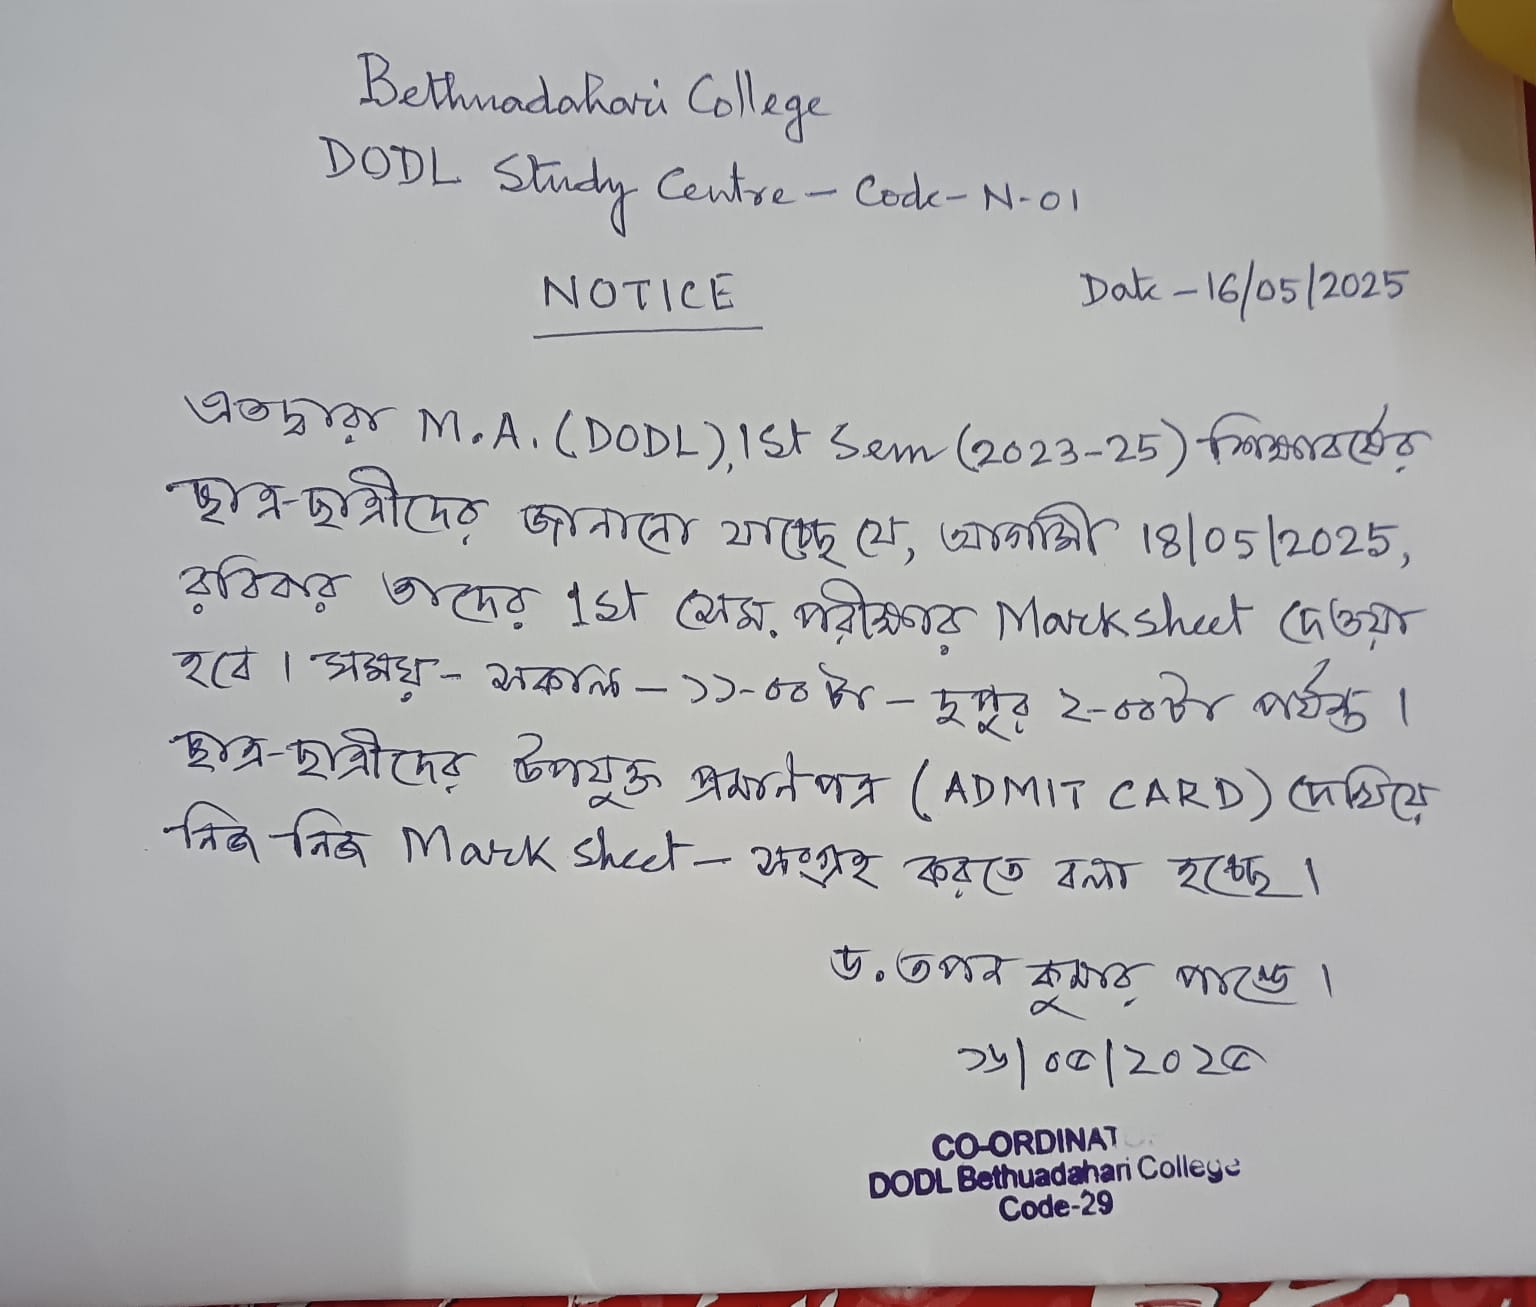 Bethuadahari College
DODL Study Centre - Code - N-01
NOTICE
Date - 16/05/2025
এতদ্বারা M.A. (DODL), 1st Sem (2023-25) শিক্ষাবর্ষের
ছাত্র-ছাত্রীদের জানানো যাচ্ছে যে, আগামী 18/05/2025,
রবিবার তাদের 1st সেম. পরীক্ষার Marksheet দেওয়া
হবে। সময় - সকাল - ১১-০০ টা - দুপুর ২-০০টা পর্যন্ত।
ছাত্র-ছাত্রীদের উপযুক্ত প্রমানপত্র (ADMIT CARD) দেখিয়ে
নিজ নিজ Mark sheet - সংগ্রহ করতে বলা হচ্ছে।
ড. তপন কুমার পান্ডে।
১৬/০৫/২০২৫
CO-ORDINAT
DODL Bethuadahari College
Code-29